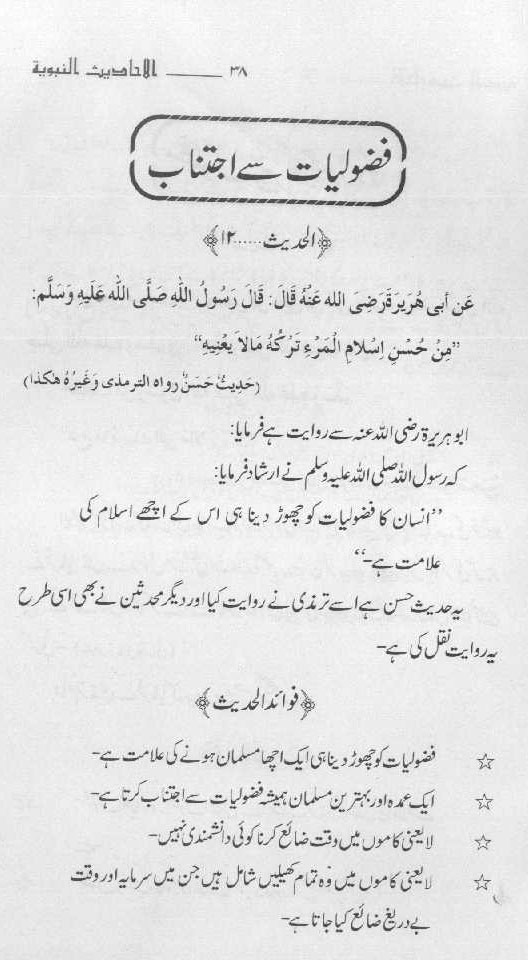 ۳۸ ـــــــ الاحادیث النبویة
فضولیات سے اجتناب
﴿الحدیث.....۱۲﴾
عَن أبی هُرَیرَةَ رَضِیَ الله عَنْهُ قَالَ: قَالَ رَسُولُ اللهِ صَلَّی الله عَلَیهِ وَسَلَّم:
”مِنْ حُسْنِ اِسْلَامِ الْمَرْءِ تَرْکُهُ مَالَا یَعْنِیهِ“
(حَدِیثٌ حَسَنٌ رواه الترمذی وَغَیرُهُ هٰکذا)
ابو ہریرۃ رضی اللہ عنہ سے روایت ہے فرمایا:
کہ رسول اللہ صلی اللہ علیہ وسلم نے ارشاد فرمایا:
”انسان کا فضولیات کو چھوڑ دینا ہی اس کے اچھے اسلام کی
علامت ہے۔“
یہ حدیث حسن ہے اسے ترمذی نے روایت کیا اور دیگر محدثین نے بھی اسی طرح
یہ روایت نقل کی ہے۔
﴿فوائد الحدیث﴾
☆ فضولیات کو چھوڑ دینا ہی ایک اچھا مسلمان ہونے کی علامت ہے۔
☆ ایک عمدہ اور بہترین مسلمان ہمیشہ فضولیات سے اجتناب کرتا ہے۔
☆ لا یعنی کاموں میں وقت ضائع کرنا کوئی دانشمندی نہیں۔
☆ لا یعنی کاموں میں وہ تمام کھیلیں شامل ہیں جن میں سرمایہ اور وقت
بے دریغ ضائع کیا جاتا ہے۔